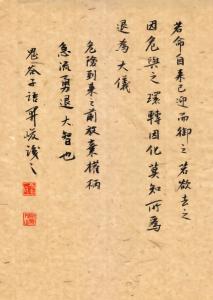 若命自来已迎而御之若欲去之
因危與之環轉因化莫知所為
退為大儀
危險到来之前放棄權柄
急流勇退大智也
鬼谷子語